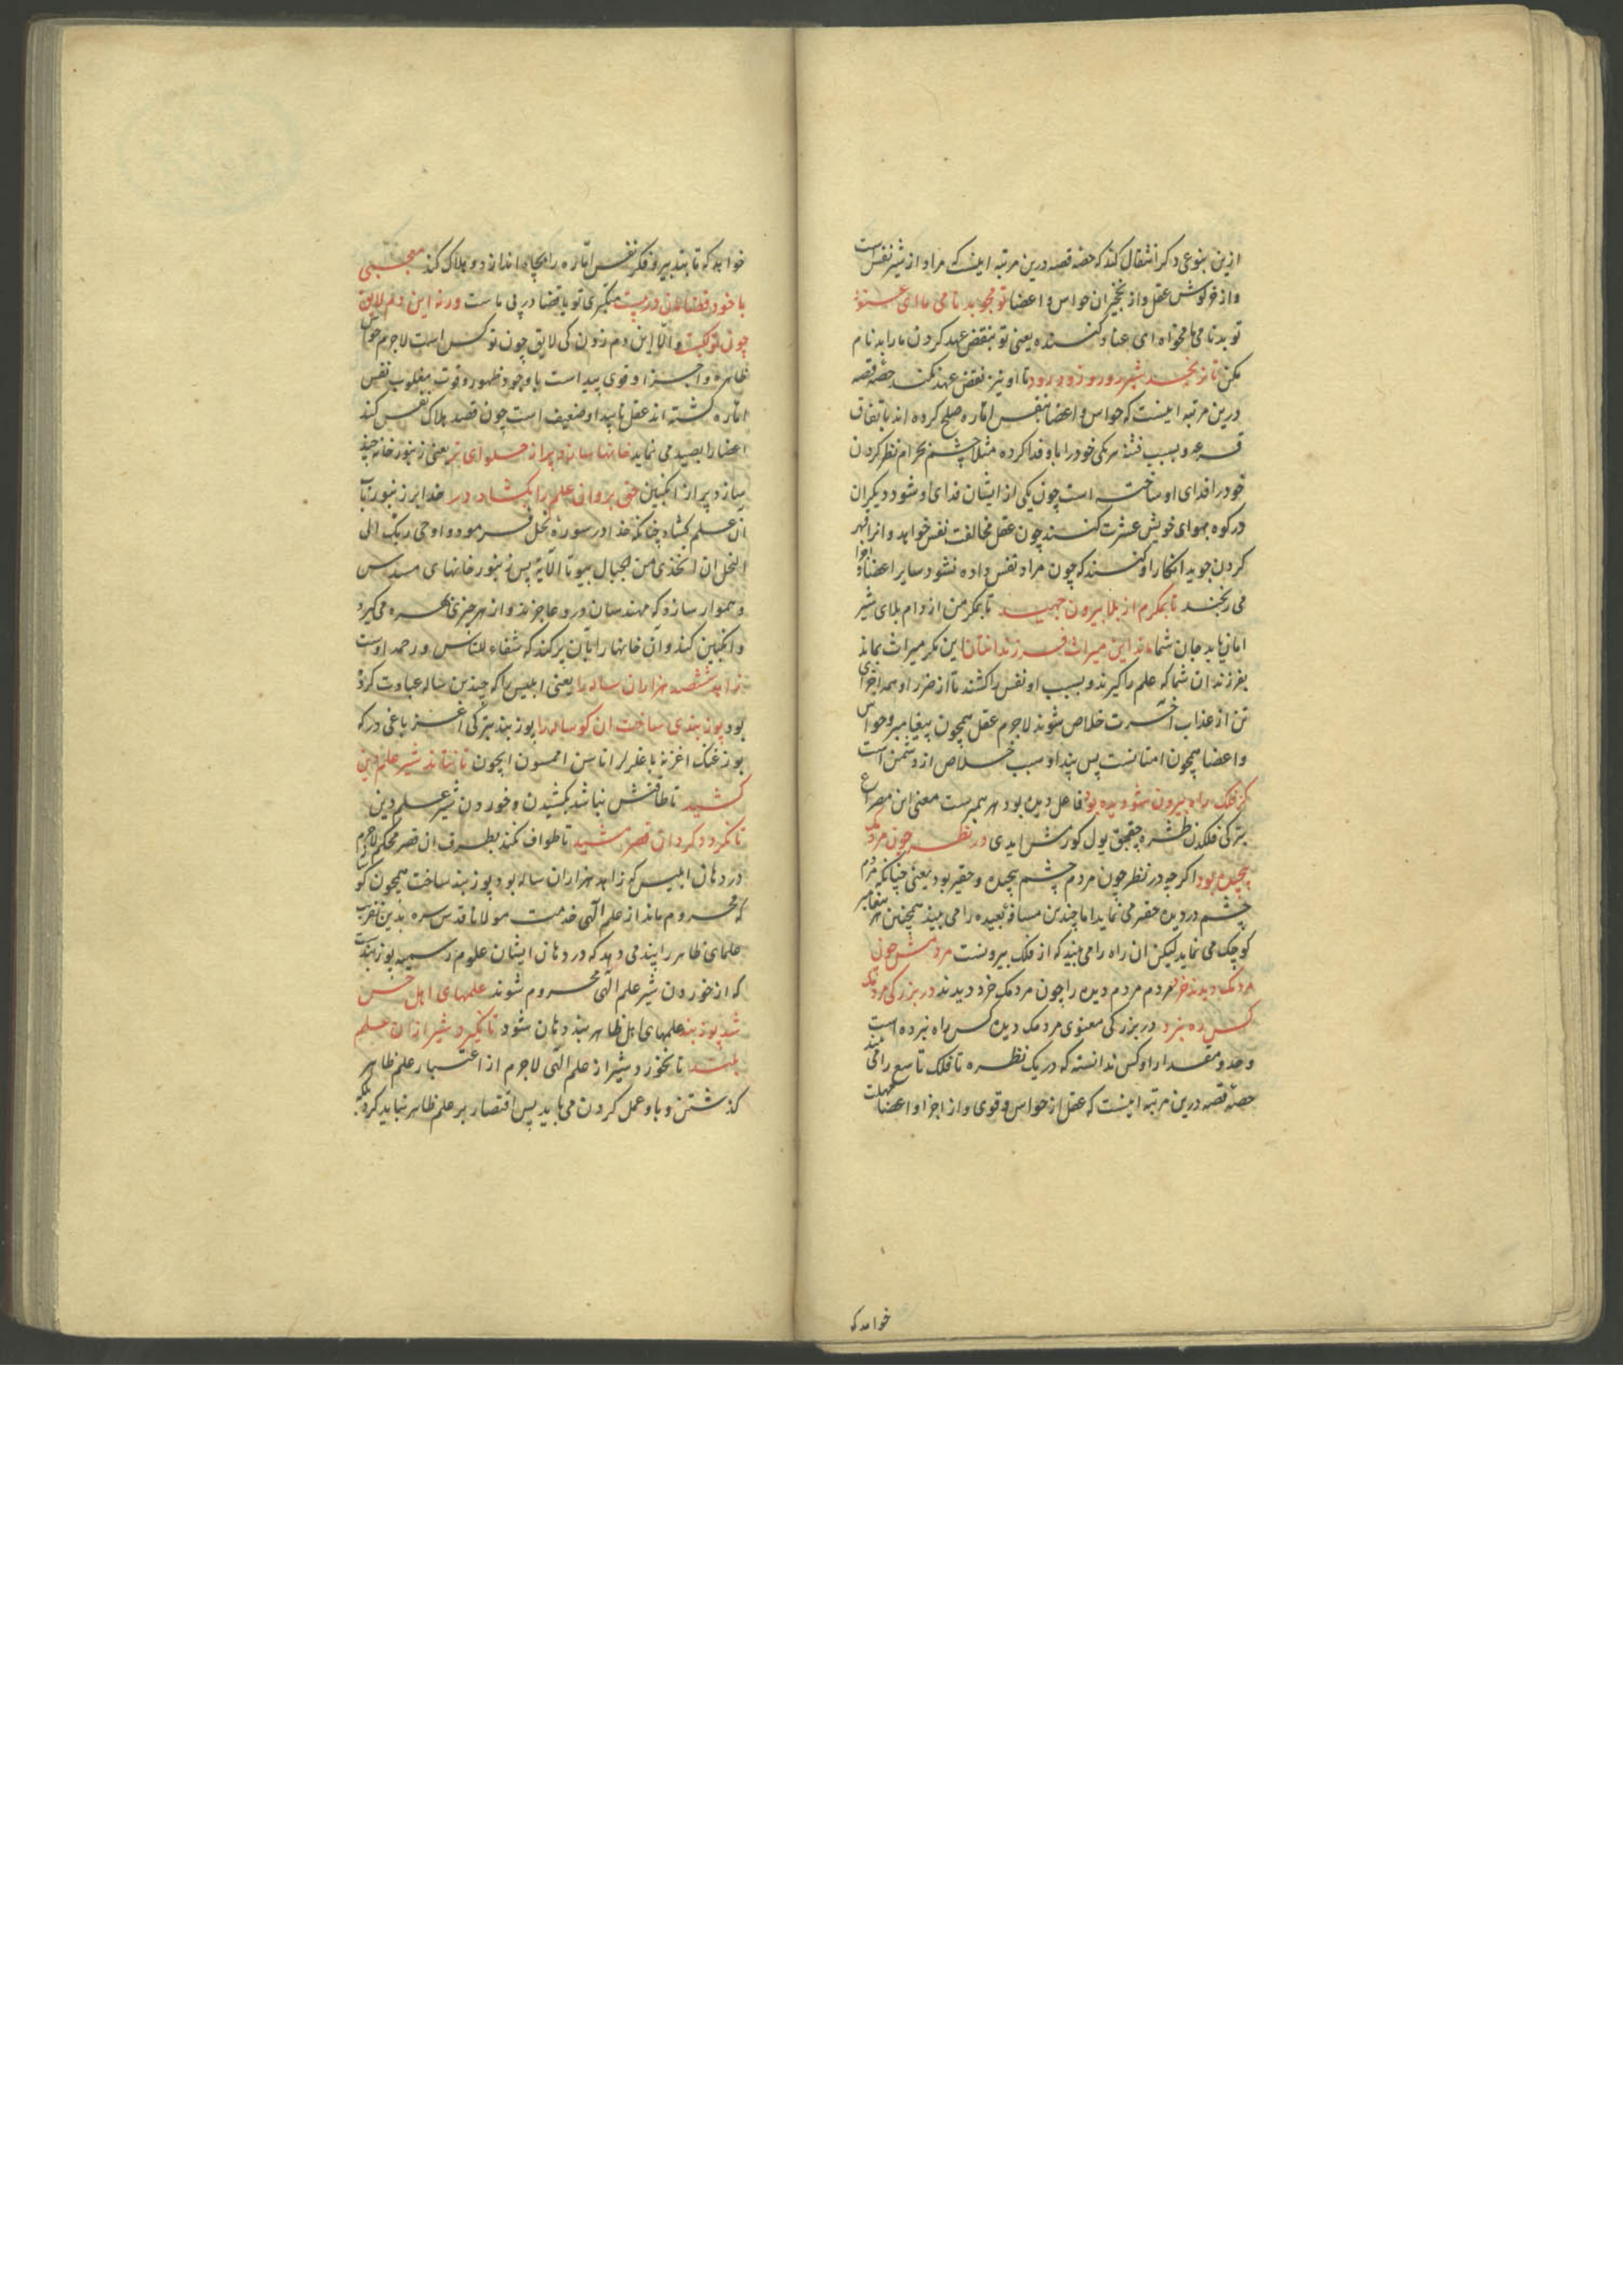 ازین بنوعی دکر انتقال کند که حصه قصه درین مرتبه اینست که مراد از شیر نفس است
و از خرکوش عقل و از نخچیران حواس و اعضا تو مجو بدنامی ما ای عنود
تو بدنامی ما مخواه ای عناد کننده یعنی تو بنقض عهد کردن ما را بدنام
مکن تا نرنجد شیر رو رو زود زود تا او نیز نقض عهد نکند حصه قصه
درین مرتبه اینست که حواس و اعضا بنفس اماره صلح کرده اند باتفاق
قرعه و بسبب فتنه هر یکی خود را باو فدا کرده مثلا چشم بحرام نظر کردن
خود را فدای او ساخته است چون یکی از ایشان فدای او شود دیکران
در کوه بهوای خویش عشرت کنند چون عقل مخالفت نفس خواهد و انرا قهر
کردن جوید انکار او کنند که چون مراد نفس داده نشود سایر اعضا و اجزا
می رنجند تا بمکرم از بلا بیرون جهید تا بمکر من از دام بلای شیر
امان یابد جان شما ماند این میراث فرزندانتان این مکر میراث بماند
بفرزندان شما که علم را کیرند و بسبب او نفس را کشند تا از ضرر او همه اجزای
تن از عذاب آخرت خلاص شوند لاجرم عقل همچون پیغامبر و حواس
و اعضا همچون امتانست پس پند او سبب خلاص از دشمن است
کز فلک راه بیرون شو دیده بود فاعل دیده بود هر پیمبرست معنی این مصراع
بترکی فلکدن طشره چقجق یول کورمش ایدی در نظر چون مردمک
پیچیده بود اکرچه در نظر چون مردم چشم پیچیده و حقیر بود یعنی چنانکه مردم
چشم در دیده حقیر می نماید اما چندین مسافه بعیده را می بیند همچنین هر پیغامبر
کوچک می نماید لیکن ان راه را می بیند که از فلک بیرونست مردمش چون
مردمک دیدند خرد مردم مردم دیده را چون مردمک خرد دیدند در بزرکی مردمک
کس ره نبرد در بزرکی معنوی مردمک دیده کس راه نبرده است
وحد و مقدار او کس ندانسته که در یک نظره تا فلک تاسع را می بیند
حصه قصه درین مرتبه اینست که عقل از حواس و قوی و از اجزا و اعضا مهلت
خواهد که
خواهد که تا بتدبیر و فکر نفس اماره را بچاه اندازد و هلاک کند معجبی
با خود قضامان در پیست متکبری تو یا قضا در پی ماست ورنه این دم لایق
چون تو کیست و الا این دم زدن کی لایق چون تو کس است لاجرم حواس
ظاهره و اجزا و قوی پیداست با وجود ظهور و قوت مغلوب نفس
اماره کشته اند عقل ناپیدا و ضعیف است چون قصد هلاک نفس کند
اعضا را بعید می نماید خانها سازد پر از حلوای تر یعنی زنبور خانه چند
سازد پر از انکبین حق برو ان علم را بکشاد در خدا بر زنبور باب
آن علم کشاد چنانکه خدا در سوره نحل فرمود و اوحی ربک الی
النحل ان اتخذی من الجبال بیوتا الآیة پس زنبور خانهای مسدس
و هموار سازد که مهندسان درو عاجزند و از هر چیزی قطره می کیرد
و انکبین کند و آن خانها را بآن پر کند که شفاء للناس در حق اوست
زاهد ششصد هزاران ساله را یعنی ابلیس را که چندین ساله عبادت کرده
بود پوزبندی ساخت ان کوساله را پوزبند بترکی اغز باغی در که
بوزغنک اغزنه باغلرلر اناسن اممسون ایچون تا نتاند شیر علم دین
کشید تا طاقتش نباشد بکشیدن و خوردن شیر علم دین
تا نکردد کرد ان قصر مشید تا طواف نکند بطرف ان قصر محکم لاجرم
در دهان ابلیس که زاهد هزاران ساله بود پوزبند ساخت همچون کوساله
که محروم ماند از علم الهی خدمت مولانا قدس سره بدین تقریب
علمای ظاهر را پند می دهد که در دهان ایشان علوم رسمیه پوزبندست
که از خوردن شیر علم الهی محروم شوند علمهای اهل حس
شد پوزبند علمهای اهل ظاهر بند دهان شود تا نکیرد شیر از ان علم
بلند تا نخورد شیر از علم الهی لاجرم از اعتبار علم ظاهر
کذشتن و باو عمل کردن می باید پس اقتصار بر علم ظاهر نباید کرد بلکه